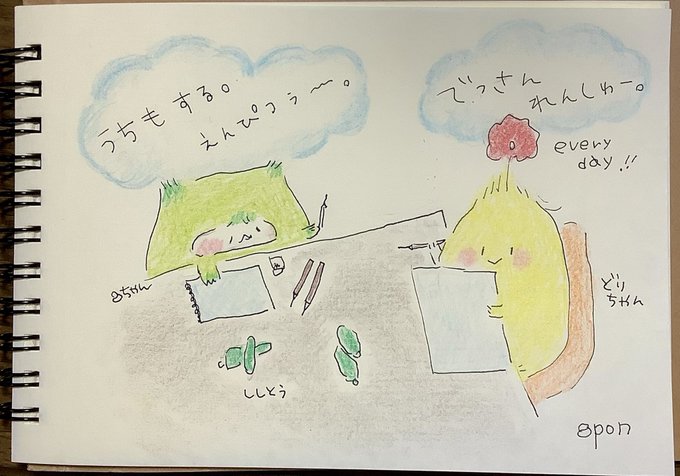 うちもする。
えんぴつぅ〜。
でっさん
れんしゅー。
every
day!!
8ちゃん
どり
ちゃん
ししとう
8pon